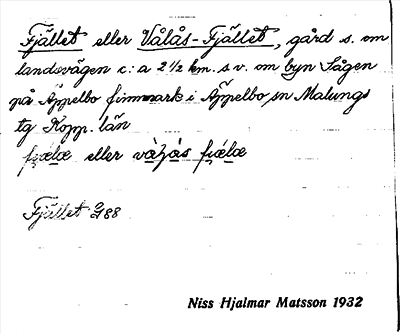 Fjället eller Vålås-Fjället, gård s. om
landsvägen c:a 2½ km. s v. om byn Sågen
på Äppelbo finnmark i Äppelbo sn Malungs
tg Kopp. län
eller
Fjället G88
Niss Hjalmar Matsson 1932